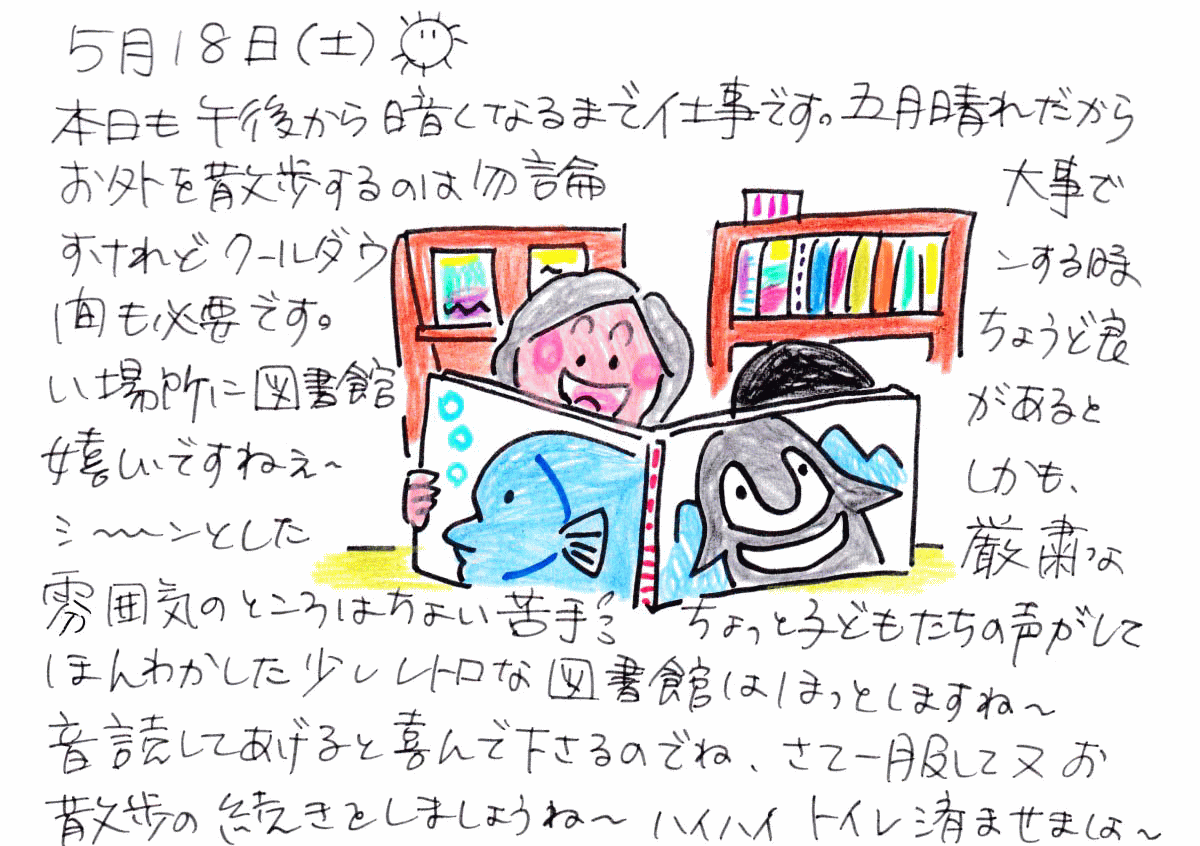 5月18日(土)
本日も午後から暗くなるまで仕事です。五月晴れだから
お外を散歩するのは勿論 大事で
すけれどクールダウ ンする時
間も必要です。 ちょうど良
い場所に図書館 があると
嬉しいですねぇ〜 しかも、
シ〜〜ンとした 厳粛な
雰囲気のところはちょい苦手 ちょっと子どもたちの声がして
ほんわかした少しレトロな図書館はほっとしますね〜
音読してあげると喜んで下さるのでね、さて一服して又お
散歩の続きとしましょうね〜 ハイハイ トイレ済ませましょ〜